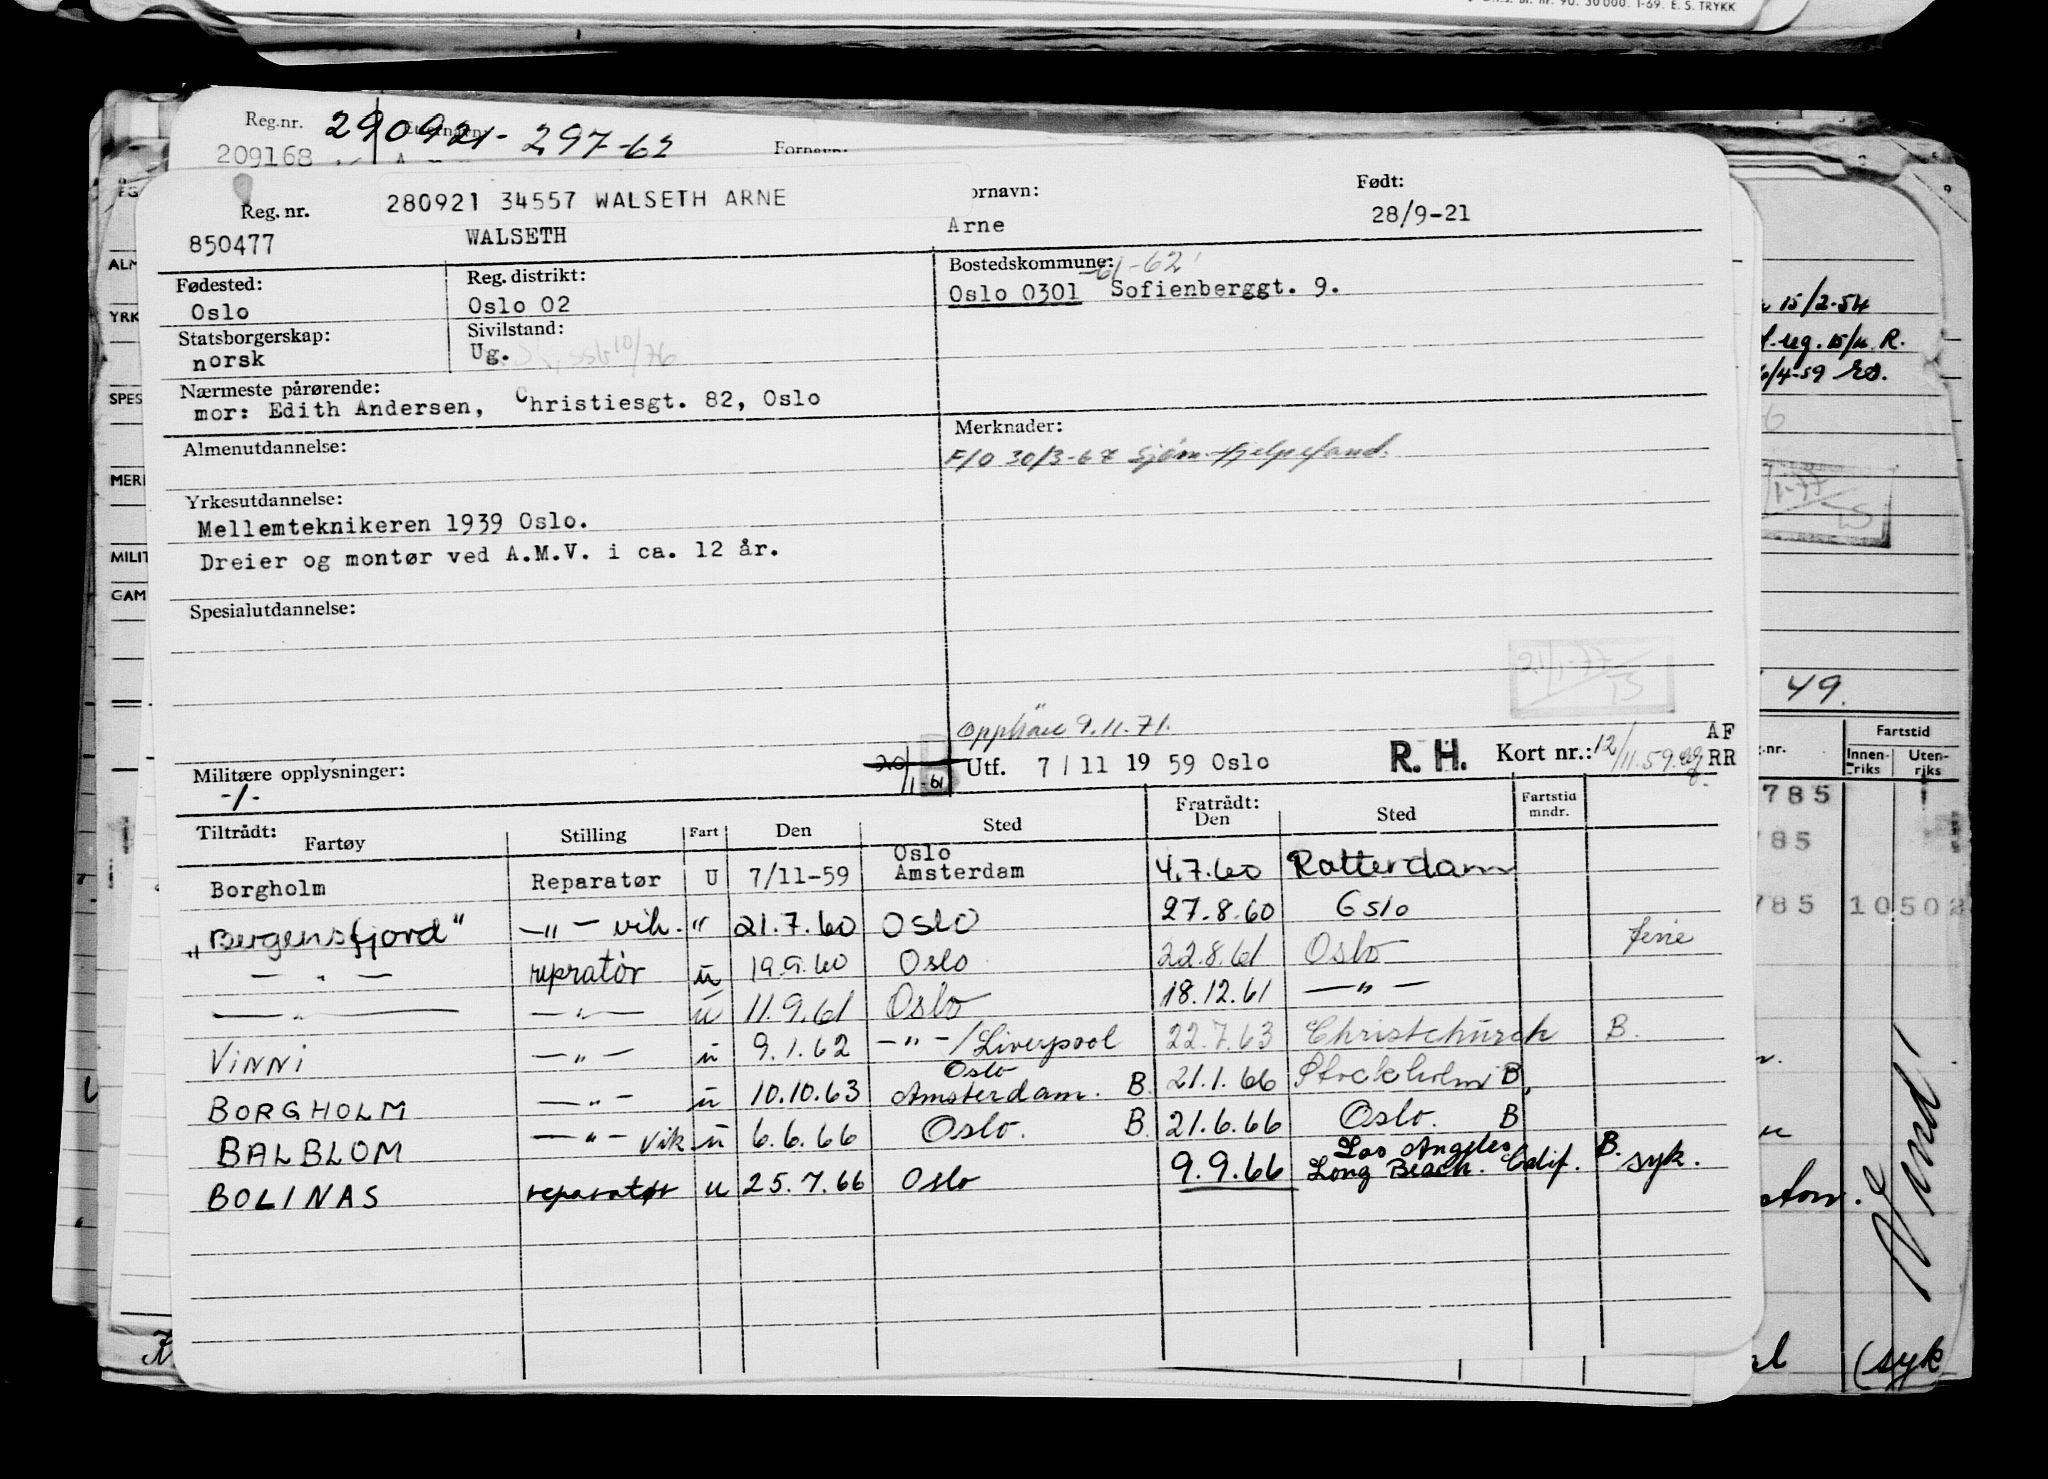 Bl. nr. 90. 30000. 1-69. E. S. TRYKK
Reg.nr. 290921-297-62
209168 Fornavn:
280921 34557 WALSETH ARNE
Reg. nr. ornavn: Født:
850477 WALSETH Arne 28/9-21
Fødested: Reg. distrikt: Bostedskommune: 61-62
Oslo Oslo 02 Oslo 0301 Sofienberggt. 9.
Statsborgerskap: Sivilstand:
norsk Ug.
Nærmeste pårørende:
mor: Edith Andersen, Christiesgt. 82, Oslo
Almenutdannelse: Merknader:
F/O 30/3-67 Sjøm. hjelpefond.
Yrkesutdannelse:
Mellemteknikeren 1939 Oslo.
Dreier og montør ved A.M.V. i ca. 12 år.
Spesialutdannelse:
21/1-77
Opphøre 9.11.71.
Militære opplysninger: Utf. 7/11 1959 Oslo R. H. Kort nr.: 12/11.59. AF RR
-/-
Tiltrådt: Fratrådt:
Fartøy Stilling Fart Den Sted Den Sted Fartstid mndr.
Borgholm Reparatør U 7/11-59 Oslo Amsterdam 4.7.60 Rotterdam
"Bergensfjord" -"- vik. " 21.7.60 OSLO 27.8.60 Oslo
- " - repratør u 19.9.60 Oslo 22.8.61 Oslo ferie
- " - -"- u 11.9.61 Oslo 18.12.61 -"-
VINNI -"- u 9.1.62 -"-/Liverpool 22.7.63 Christchurch B.
BORGHOLM -"- u 10.10.63 Oslo Amsterdam. B. 21.1.66 Stockholm B.
BALBLOM -"- vik u 6.6.66 Oslo. B. 21.6.66 Oslo. B
BOLINAS reparatør u 25.7.66 Oslo 9.9.66 Los Angeles Long Beach. Calif. B. syk.
ALM
YRK
SPES
MER
MILIT
GAM
15/2-54
/4-59
1-77
49.
.nr. Fartstid
Innen-riks Uten-riks
785
85
785 10502
(syk